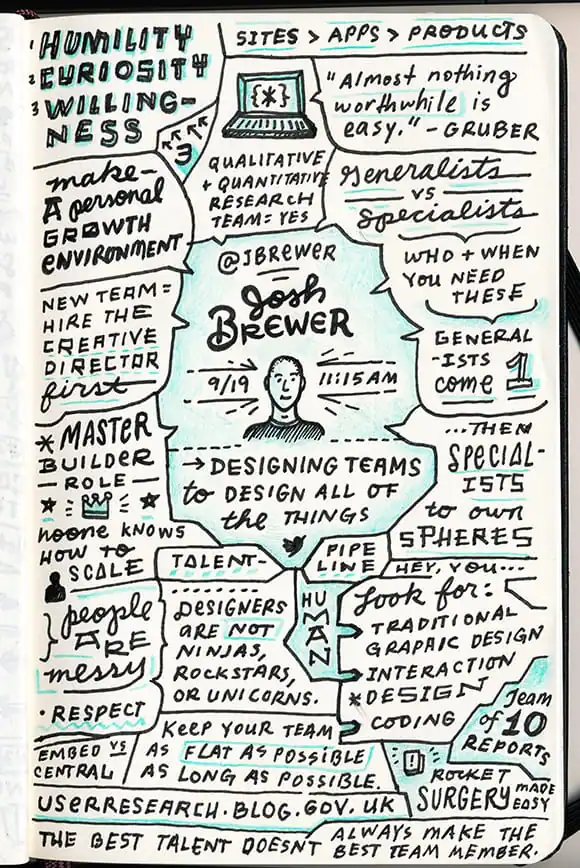 1 HUMILITY
2 CURIOSITY
3 WILLING-
NESS
3
SITES > APPS > PRODUCTS
{*}
"Almost nothing
worthwhile is
easy." - GRUBER
QUALITATIVE
+ QUANTITATIVE
RESEARCH
TEAM = YES
make-
A personal
GROWTH
ENVIRONMENT
Generalists
vs
Specialists
WHO + WHEN
YOU NEED
THESE
@JBREWER
Josh
BREWER
9/19 11:15 AM
→ DESIGNING TEAMS
to DESIGN ALL OF
the THINGS
NEW TEAM =
HIRE THE
CREATIVE
DIRECTOR
first
GENERAL
-ISTS
come 1
...THEN
SPECIAL-
ISTS
to own
SPHERES
* MASTER
BUILDER
- ROLE -
noone KNOWS
HOW TO
SCALE
TALENT-
PIPE
LINE
HUMAN
HEY, YOU...
Look for:
TRADITIONAL
GRAPHIC DESIGN
INTERACTION
* DESIGN
CODING
people
ARE
messy
• RESPECT
DESIGNERS
ARE NOT
NINJAS,
ROCKSTARS,
OR UNICORNS.
Team
of 10
REPORTS
EMBED VS
CENTRAL
KEEP YOUR TEAM
AS FLAT AS POSSIBLE
AS LONG AS POSSIBLE.
ROCKET
SURGERY MADE
EASY
USERRESEARCH.BLOG.GOV.UK
THE BEST TALENT DOESNT ALWAYS MAKE THE
BEST TEAM MEMBER.